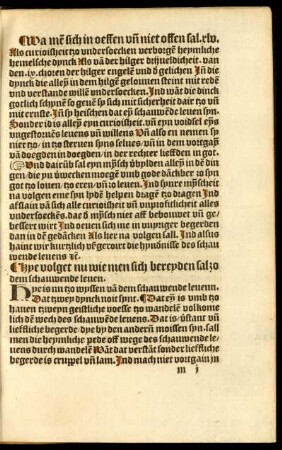 ¶Wa mẽ sich in oeffen vñ niet offen sal. xlv.
Also curioisheit tzo vndersoecken verborgẽ heymliche
hemelsche dynck Also vã der hilger drijueldicheit. van
den .ix. choren der hilger engelẽ vnd ð gelichen Jñ die
dynck die alleyn in dem hilgẽ gelouuen steint mit redẽ
vnd verstande willẽ vndersoecken. Jnd wãt die dinck
gotlich schynẽ so geuẽ sy sich mit sicherheit dair tzo vñ
mit ernste. Jñ sy heischen dat eyn schauwẽde leuen syn.
Sonder id is alleyn eyn curioisheit. vñ eyn voidsel eyn
vngestouuẽs leuens vñ willens Vñ also en nemen sy
niet tzo, in tzo sternen syns selues, vñ in dem vortgan
vã doegden in doegden, in der rechter liefden in got.
Vñ dairũb sal eyn mÿsch ouydlen alleyn die
dyncke. die yn ůwecken moegẽ vnd gode dãckber zo syn
got tzo louen tzo eren vñ tzo leuen. Jnd spure mÿscheit
na volgen eme syn lydẽ helpen dragẽ tzo dragen Jnd
afflaissen vã sich alle curioisheit vñ vnproffijtlicher alles
vndersoeckẽs. dae ð mÿsch niet aff bebouwet vñ ge⸗
bessert wirt Jnd oeuen sich ne in wyniger begerden
dan in dẽ gedãcken Also hie na volgen sall. Jnd also
haint wir kurtzlich vergeroirt die hyndnisse des schau
wende leuens ꝛc̃.
¶Hye volget nu wie men sich bereyden sal zo
dem schauwende leuen.
Hye is nu tzo wyssen vã dem schauwende leuenn.
Dat tzwey dynck noit synt. ¶Dat ein is vmb tzo
hauen tzweyn geistliche voesse tzo wandelẽ volkome
lich dẽ wech des schauwẽde leuens. Dat is ůstant vñ
liefliche begerde. dye by den andern moissen syn. sall
men die heymliche pede off wege des schauwende le⸗
uens durch wandelẽ Wãt dat verstãt sonder liefliche
begerde is cruppel vñ lam. Jnd mach niet vortgain jn
m j